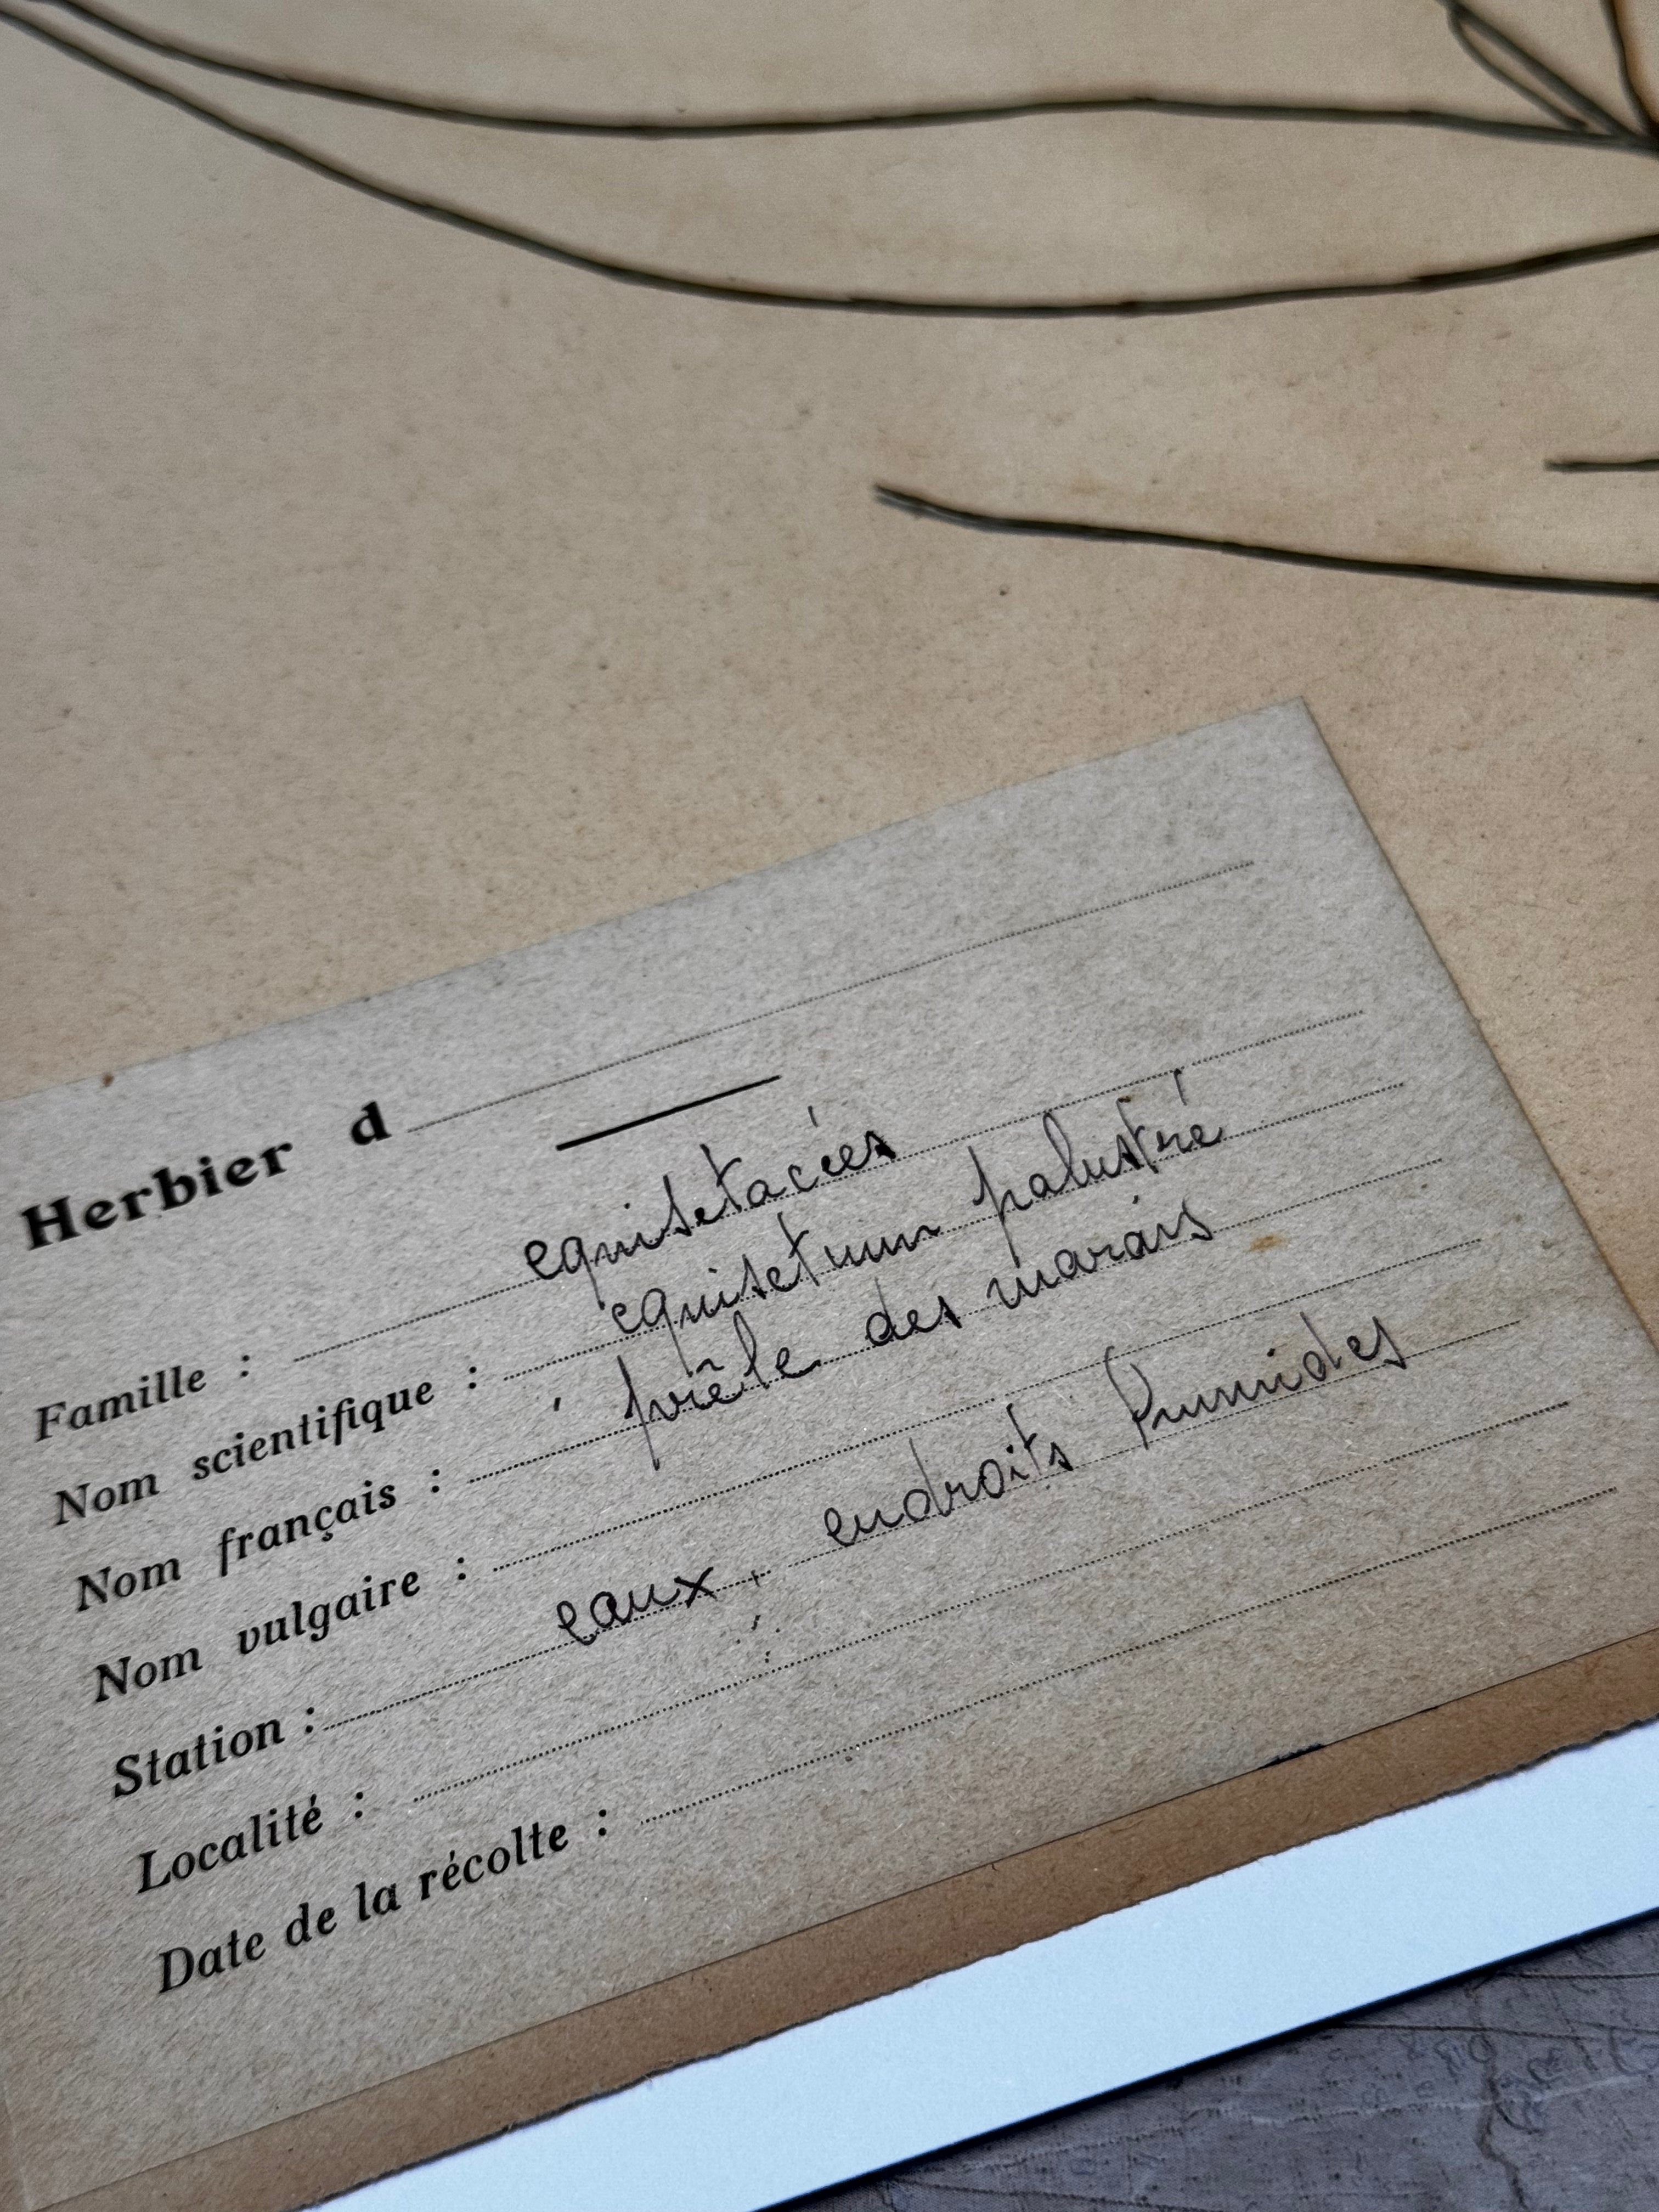 Herbier d
Famille : equisetacées
Nom scientifique : equisetum palustré
Nom français : prêle des marais
Nom vulgaire :
Station : eaux, endroits humides
Localité :
Date de la récolte :